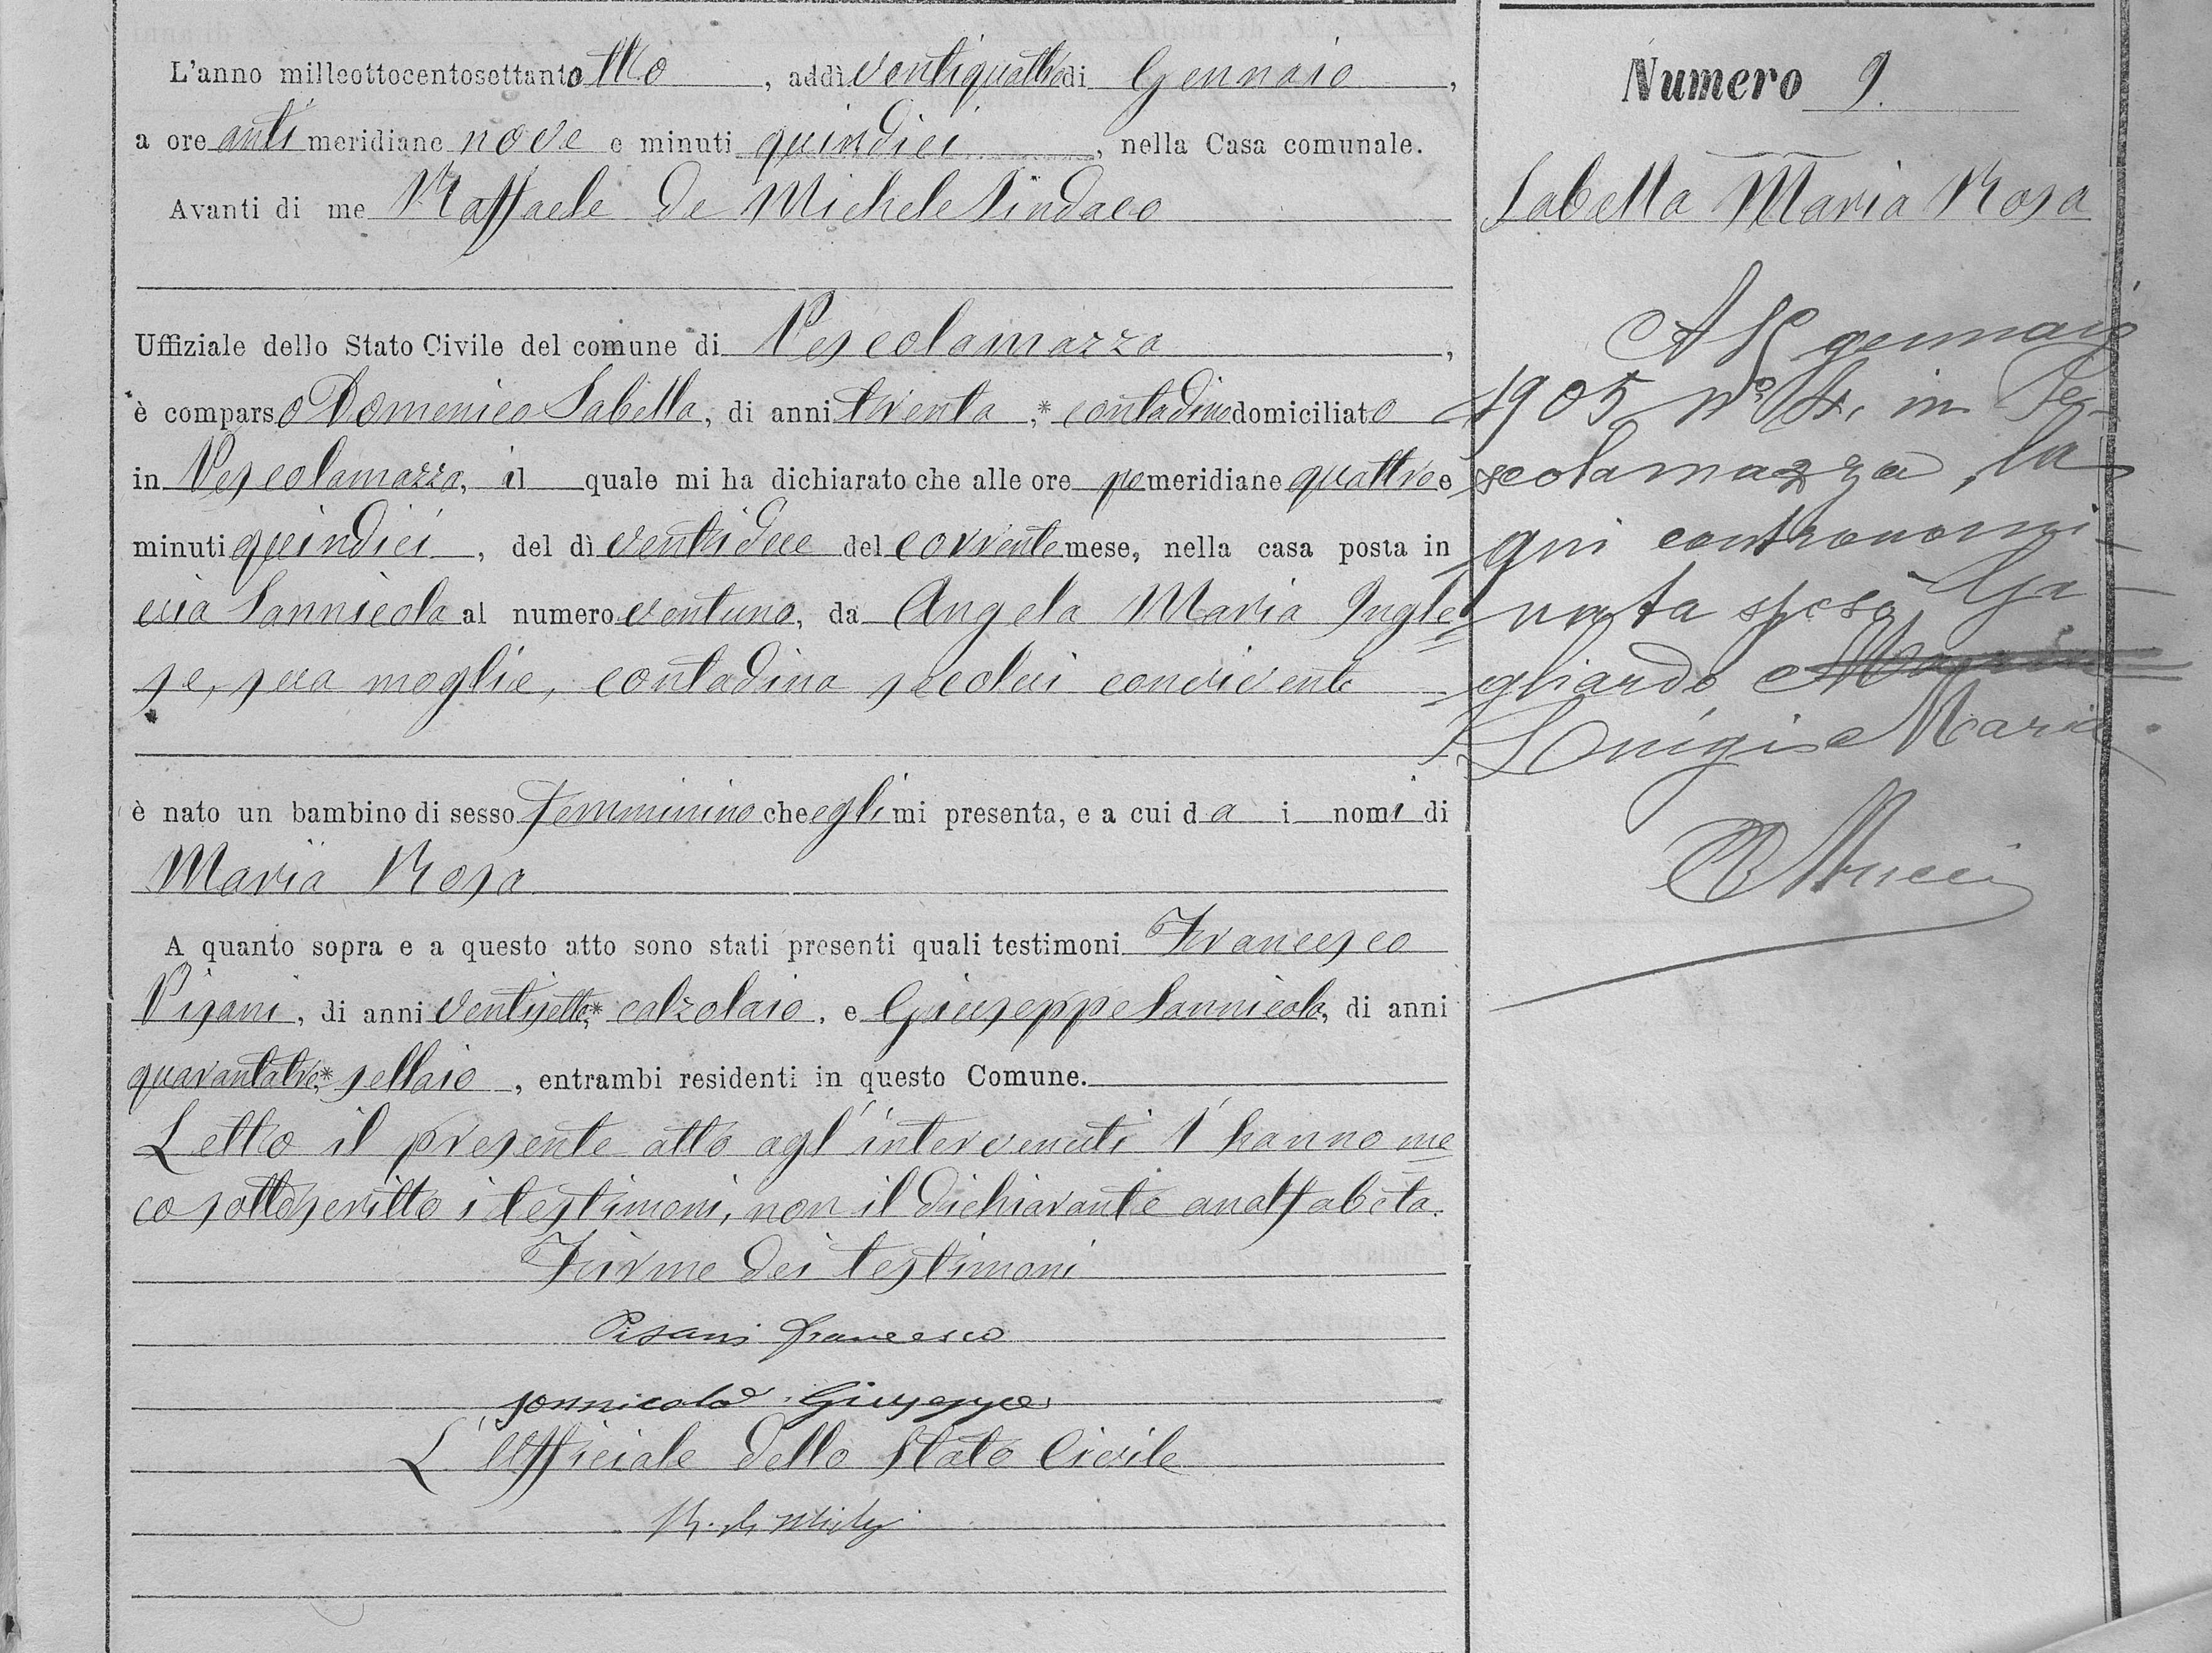 L'anno milleottocentosettantotto, addì ventiquattro di Gennaio,
a ore antimeridiane nove e minuti quindici, nella Casa comunale.
Avanti di me Raffaele de Michele Sindaco
Uffiziale dello Stato Civile del comune di Pescolamazza,
è comparso Domenico Sabella, di anni trenta,* contadino domiciliato
in Pescolamazza, il quale mi ha dichiarato che alle ore pomeridiane quattro e
minuti quindici, del dì ventidue del corrente mese, nella casa posta in
via Sannicola al numero ventuno, da Angela Maria Ingle=
se, sua moglie, contadina secolui convivente
è nato un bambino di sesso femminino che egli mi presenta, e a cui da i nomi di
Maria Rosa
A quanto sopra e a questo atto sono stati presenti quali testimoni Francesco
Pisani, di anni ventisette,* calzolaio, e Giuseppe Sannicola, di anni
quarantatre,* sellaio, entrambi residenti in questo Comune.
Letto il presente atto agl'intervenuti l'hanno me=
co sottoscritto i testimoni, non il dichiarante analfabeta.
Firme dei testimoni
Pisani Francesco
Sannicola Giuseppe
L'Ufficiale dello Stato Civile
Numero 9.
Sabella Maria Rosa
gennaio
1905 n° in Pe-
scolamazza, la
qui contronomi-
nata sposò Ga-
gliardo
Luigi Maria